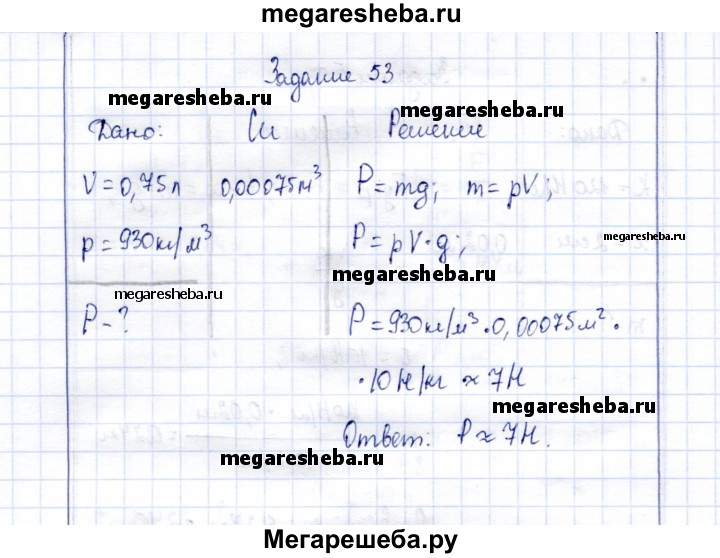 megaresheba.ru
Задание 53
megaresheba.ru
megaresheba.ru
Дано: Си Решение
V = 0,75л 0,00075м³ P = mg; m = ρV;
ρ = 930кг/м³ P = ρV·g;
megaresheba.ru
megaresheba.ru
megaresheba.ru
P - ? P = 930кг/м³ · 0,00075м² ·
· 10Н/кг ≈ 7Н
megaresheba.ru
Ответ: P ≈ 7Н.
megaresheba.ru
Мегарешеба.ру